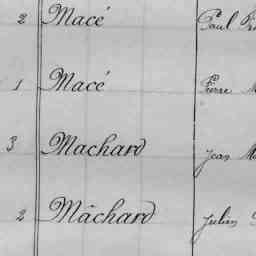 2 Macé Paul
1 Macé Pierre
3 Machard Jean
2 Mâchard Julien